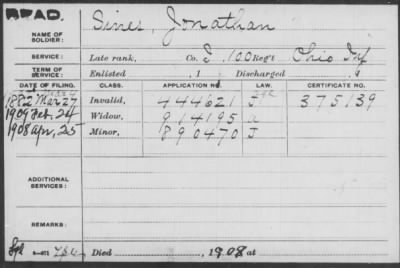 DEAD.
NAME OF SOLDIER: Sines, Jonathan
SERVICE: Late rank, Co. I, 100 Reg't Ohio Inf
TERM OF SERVICE: Enlisted , 1 Discharged , 1
DATE OF FILING. CLASS. APPLICATION NO. LAW. CERTIFICATE NO.
1882 Mar 27 Invalid, 444621 375139
1909 Feb. 24 Widow, 914195 a
1908 Apr. 25 Minor, 890470 J
ADDITIONAL SERVICES:
REMARKS:
Died , 1908 at